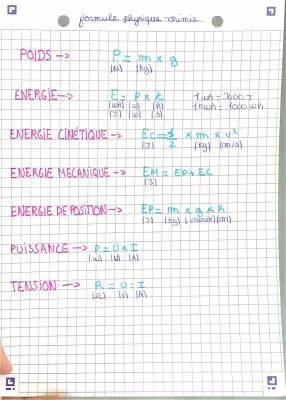 formule physique-chimie
POIDS --> P = m x g
(N) (Kg)
ENERGIE --> E = P x t 1 wh = 3600 J
(wh) (w) (h) 1 kwh = 1000 wh
(J) (w) (s)
ENERGIE CINÉTIQUE --> EC = 1/2 x m x v²
(J) (Kg) (m/s)
ENERGIE MECANIQUE --> EM = EP + EC
(J)
ENERGIE DE POSITION --> EP = m x g x h
(J) (Kg) (m)
PUISSANCE --> P = U x I
(w) (V) (A)
TENSION --> R = U ÷ I
(Ω) (V) (A)